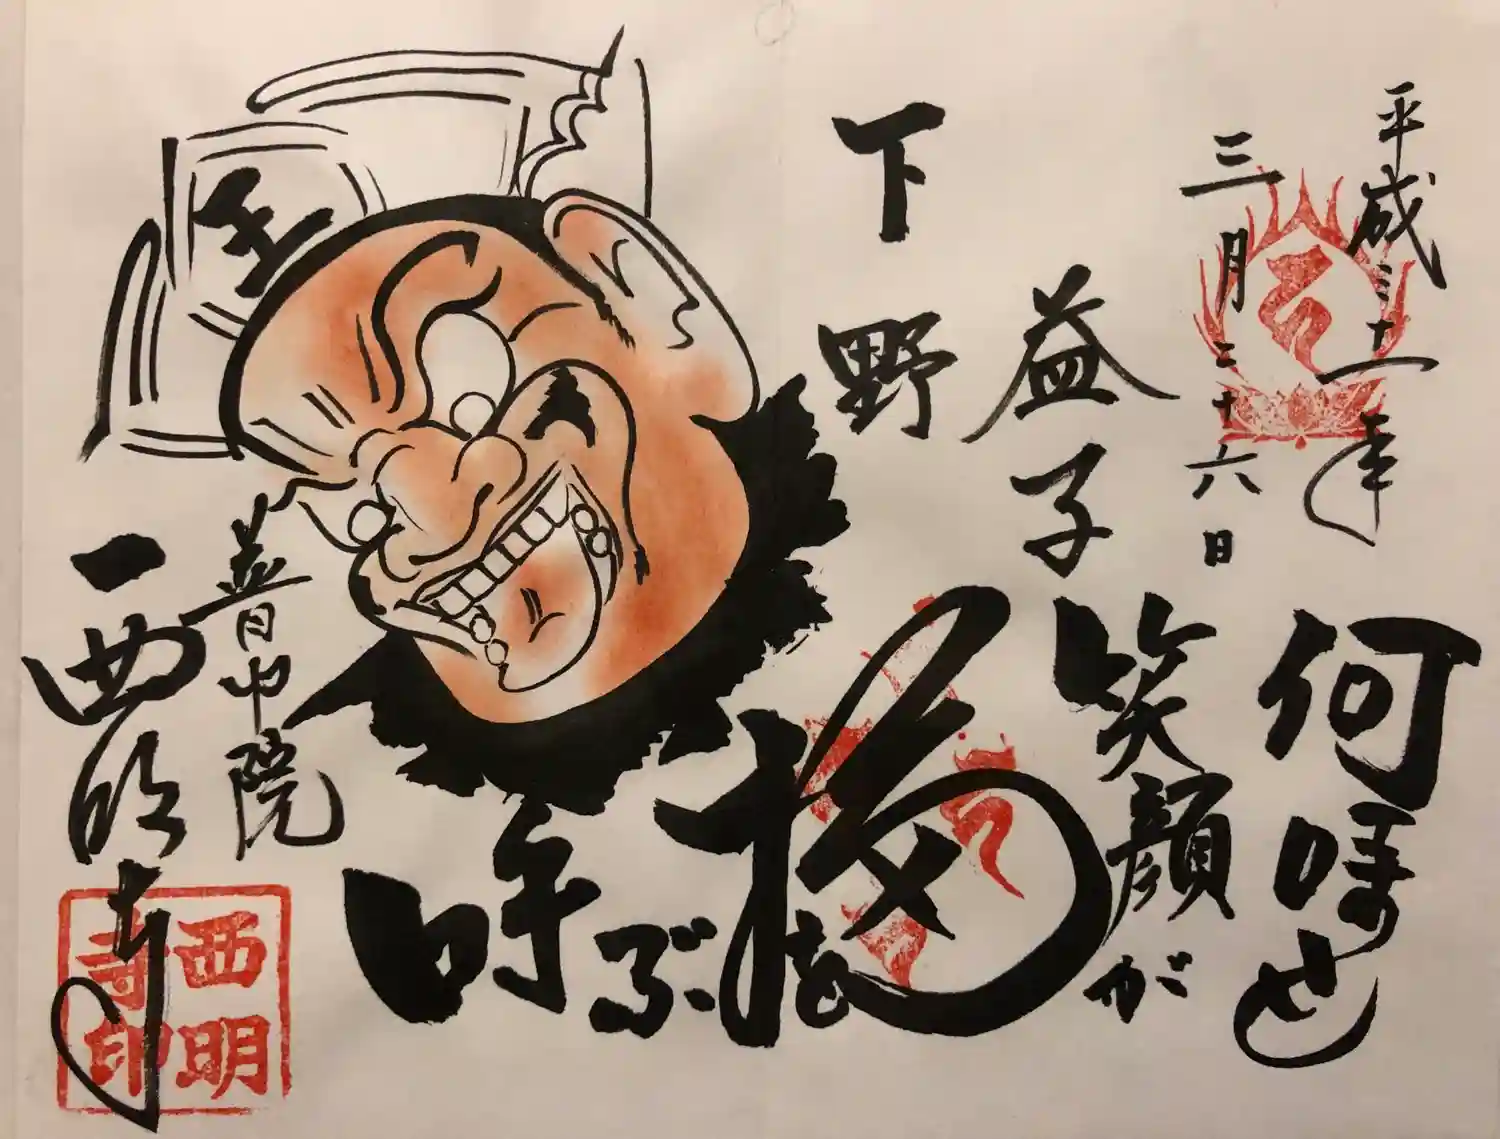 平成三十一年
三月二十六日
益子
下野
何時も
笑顔が
福を
呼ぶ
王
普門院
西明寺
西明
寺印